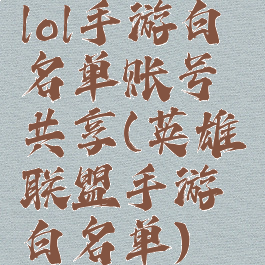 lol手游白
名单账号
共享(英雄
联盟手游
白名单)